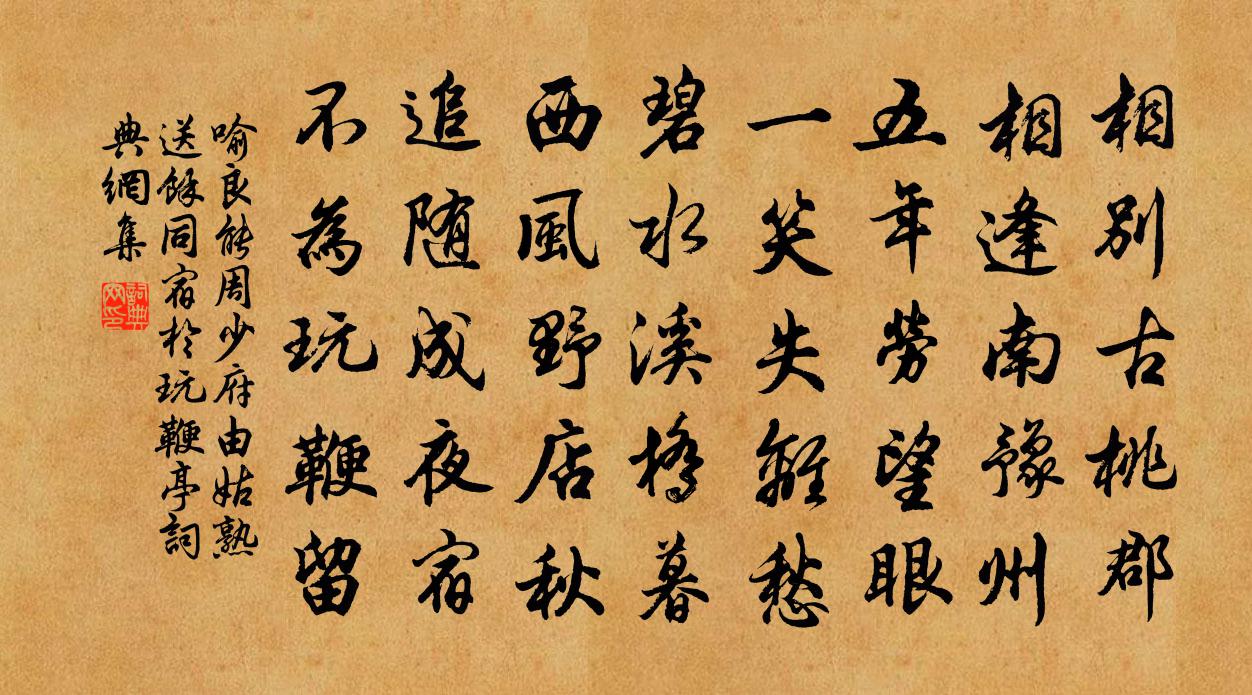 相別古桃郡
相逢南豫州
五年勞望眼
一笑失離愁
碧水溪橋暮
西風野店秋
追随成夜宿
不為玩鞭留
喻良能周少府由姑熟
送餘同宿於玩鞭亭詞
典網集
詞典網印